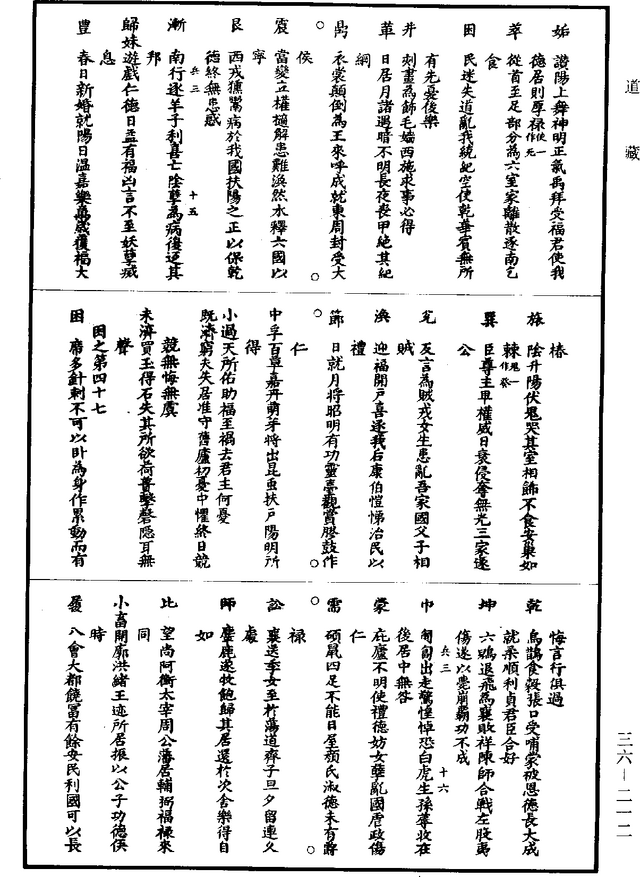 道藏
姤 讚陽上舞神明正氣禹拜受福君使我
德居則厚祿使一作死
萃 從首至足部分為六室家離散逐南乞
食
困 民迷失道亂我統紀空使乾華賓無所
有先憂後樂
井 刻畫為飾毛嬙西施求事必得
革 日居月諸遇暗不明長夜喪甲絕其紀
綱
鼎 衣裳顛倒為王來呼成就東周封受大
侯
震 當變立權擿解患難渙然冰釋六國以
寧
艮 西戎獯鬻病於我國扶陽之正以保乾
德終無患慼
兵三 十五
漸 南行逐羊子利喜亡陰孽為病復返其
邦
歸妹 遊戲仁德日益有福凶言不至妖孽咸
息
豐 春日新婚就陽日溫嘉樂萬歲獲福大
椿
旅 陰升陽伏鬼哭其室相飾不食安巢如
棘鬼一作祭
巽 臣尊主卑權威日衰侵奪無光三家逐
公
兌 反言為賊戎女生患亂吾家國父子相
賊
渙 迎福開戶喜逐我后康伯愷悌治民以
禮
節 日就月將昭明有功靈臺觀賞膠鼓作
仁
中孚 百草嘉卉萌芽將出昆虫扶戶陽明所
得
小過 天所佑助福至禍去君主何憂
既濟 窮夫失居惟守舊廬初憂中懼終日兢
兢無悔無虞
未濟 買玉得石失其所欲荷蕢擊磬隱耳無
聲
困之第四十七
困 席多針刺不可以臥為身作累動而有
悔言行俱過
乾 烏鵲食穀張口受哺蒙被恩德長大成
就柔順利貞君臣合好
坤 六鶂退飛為襄敗祥陳師合戰左股夷
傷遂以薨崩霸功不成
兵三 十六
屯 匍匐出走驚惶悼恐白虎生孫蓐收在
後居中無咎
蒙 庇廬不明使禮德妨女孽亂國虐政傷
仁
需 碩鼠四足不能日屋顏氏淑德未有爵
祿
訟 襄送季女至於蕩道齊子旦夕留連久
處
師 麋鹿逐牧飽歸其居還於次舍樂得自
如
比 望尚阿衡太宰周公藩居輔弼福祿來
同
小畜 開廓洪緒王迹所居振以公子功德俟
時
履 八會大都饒富有餘安民利國可以長
三六—二一二